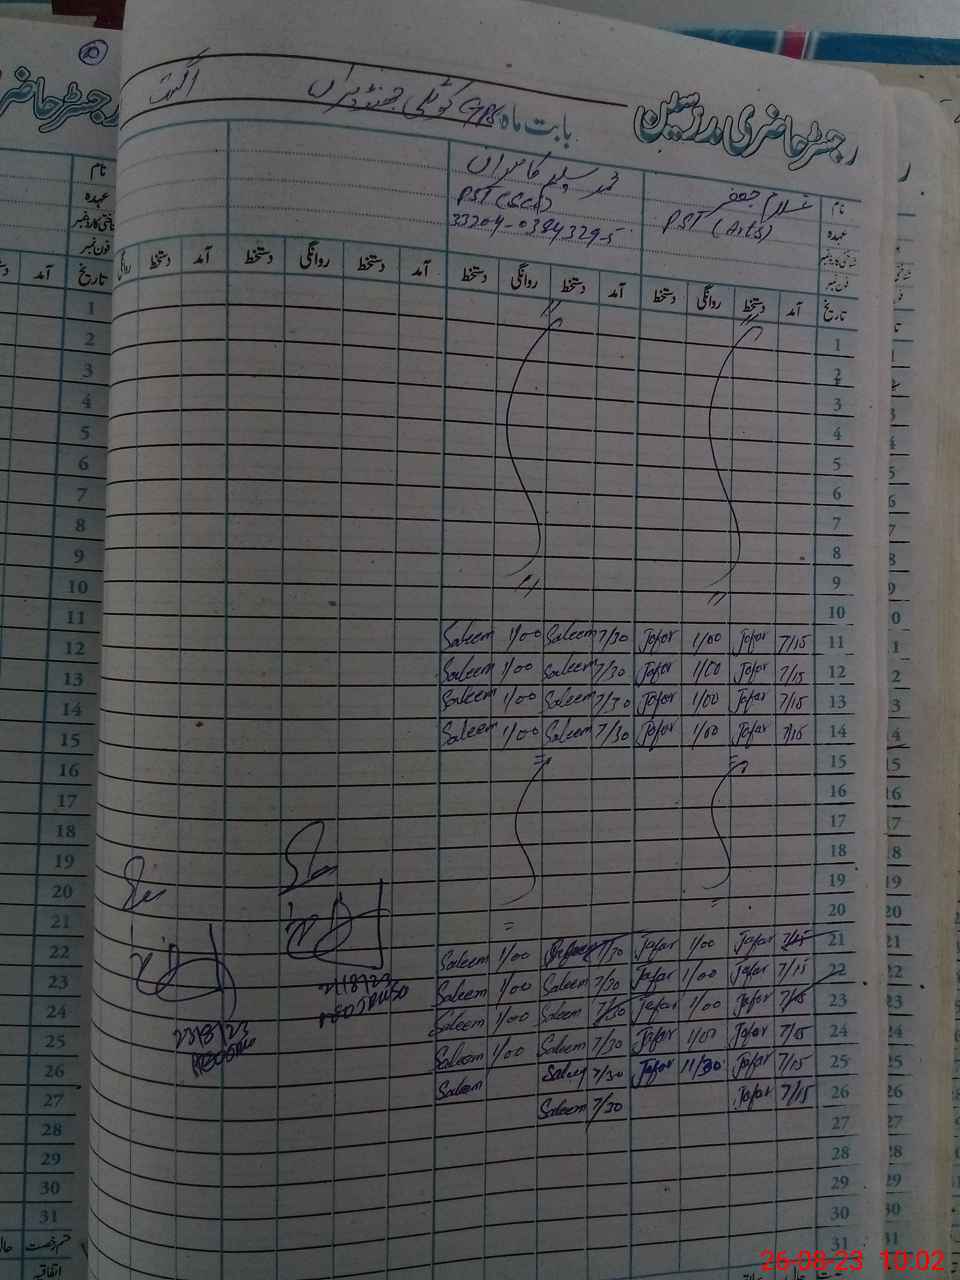 رجسٹر حاضری مدرسین بابت ماہ GPS کوٹلی جھنڈیراں اگست
نام غلام جعفر محمد سلیم کامران
عہدہ PST (Arts) PST (Sci)
شناختی کارڈ نمبر 33204-0384329-5
فون نمبر
تاریخ آمد دستخط روانگی دستخط آمد روانگی دستخط آمد دستخط روانگی دستخط آمد دستخط روانگی
1
2
3
4
5
6
7
8
9
10
11 7/15 Jafar 1/00 Jafar 7/30 Saleem 1/00 Saleem
12 7/15 Jafar 1/00 Jafar 7/30 Saleem 1/00 Saleem
13 7/15 Jafar 1/00 Jafar 7/30 Saleem 1/00 Saleem
14 7/15 Jafar 1/00 Jafar 7/30 Saleem 1/00 Saleem
15
16
17
18
19
20
21 7/15 Jafar 1/00 Jafar 7/30 1/00 Saleem
22 7/15 Jafar 1/00 Jafar 7/30 Saleem 1/00 Saleem
23 7/15 Jafar 1/00 Jafar 7/30 Saleem 1/00 Saleem
24 7/15 Jafar 1/00 Jafar 7/30 Saleem 1/00 Saleem
25 7/15 Jafar 11/30 Jafar 7/30 Saleem Saleem
26 7/15 Jafar 7/30 Saleem
27
28
29
30
31
21/8/23
23/8/23
نام
عہدہ
فون نمبر
تاریخ آمد
1
2
3
4
5
6
7
8
9
10
11
12
13
14
15
16
17
18
19
20
21
22
23
24
25
26
27
28
29
30
31
قسم رخصت
اتفاقیہ
26-08-23 10:02